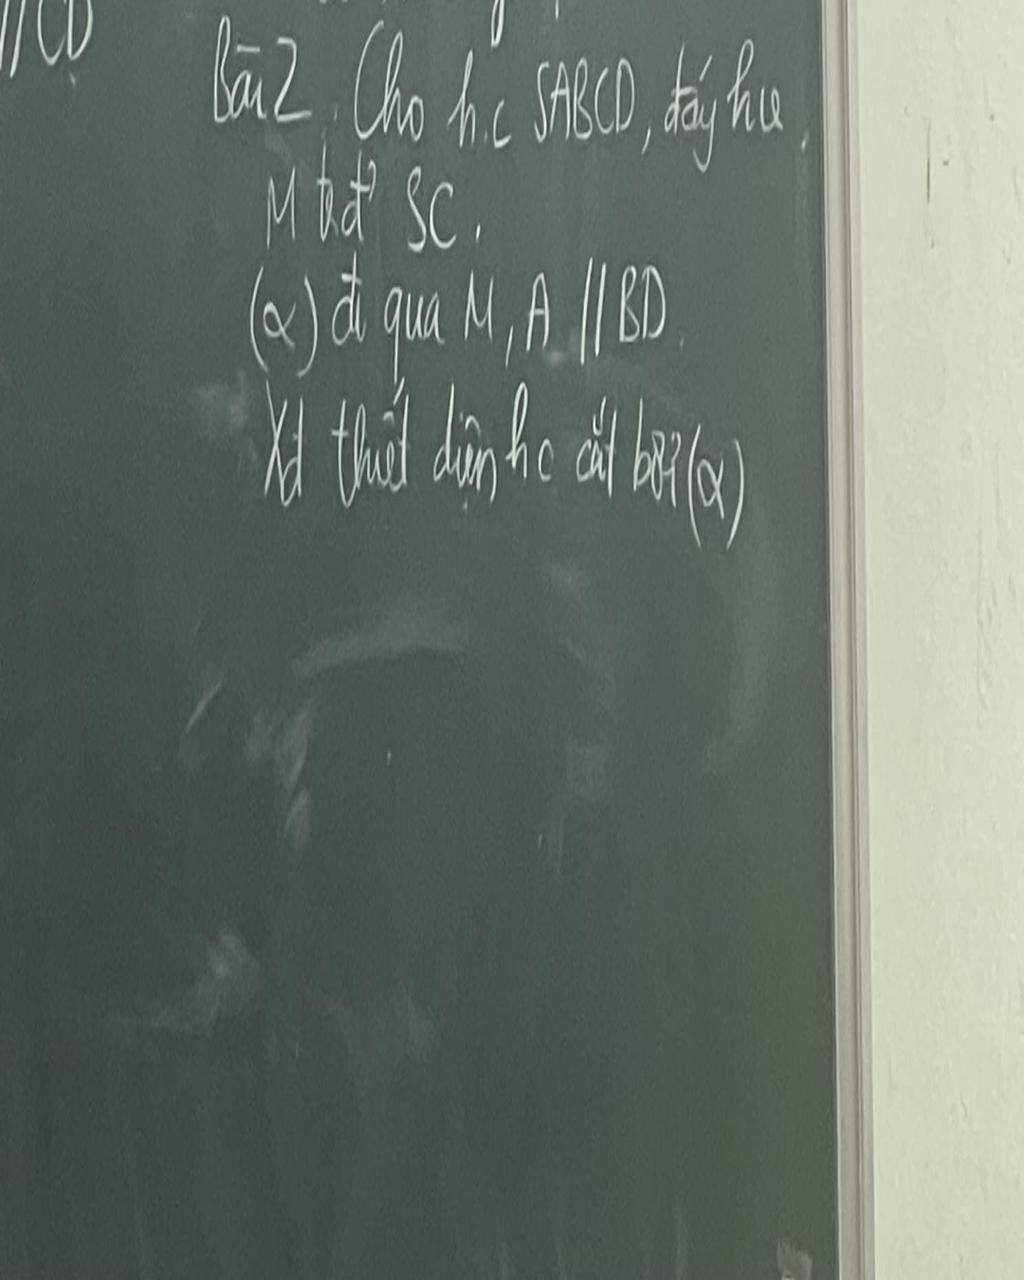 //CD
Bài 2. Cho h.c SABCD, đáy hv.
M tđ' SC.
(α) đi qua M, A // BD.
Xđ thiết diện hc cắt bởi (α)